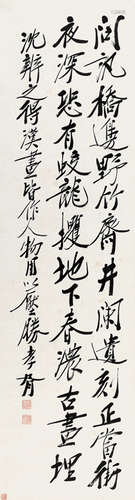 閶門橋邊野竹齋井闌遺刻正當街
夜深恐有蛟龍攫地下春濃古畫埋
沈辨之得漢畫皆作人物用以壓勝孝胥